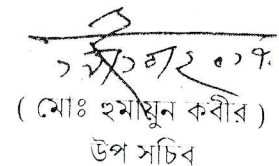 ( মোঃ হুমায়ুন কবীর )
উপ সচিব